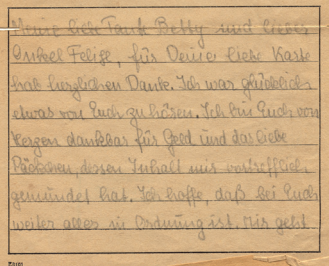 Meine liebe Tante Betty und lieber
Onkel Felix, für Deine liebe Karte
hab herzlichen Dank. Ich war glücklich
etwas von Euch zu hören. Ich bin Euch von
Herzen dankbar für Geld und das liebe
Päckchen, dessen Inhalt mir vortrefflich
gemundet hat. Ich hoffe, daß bei Euch
weiter alles in Ordnung ist. Mir geht